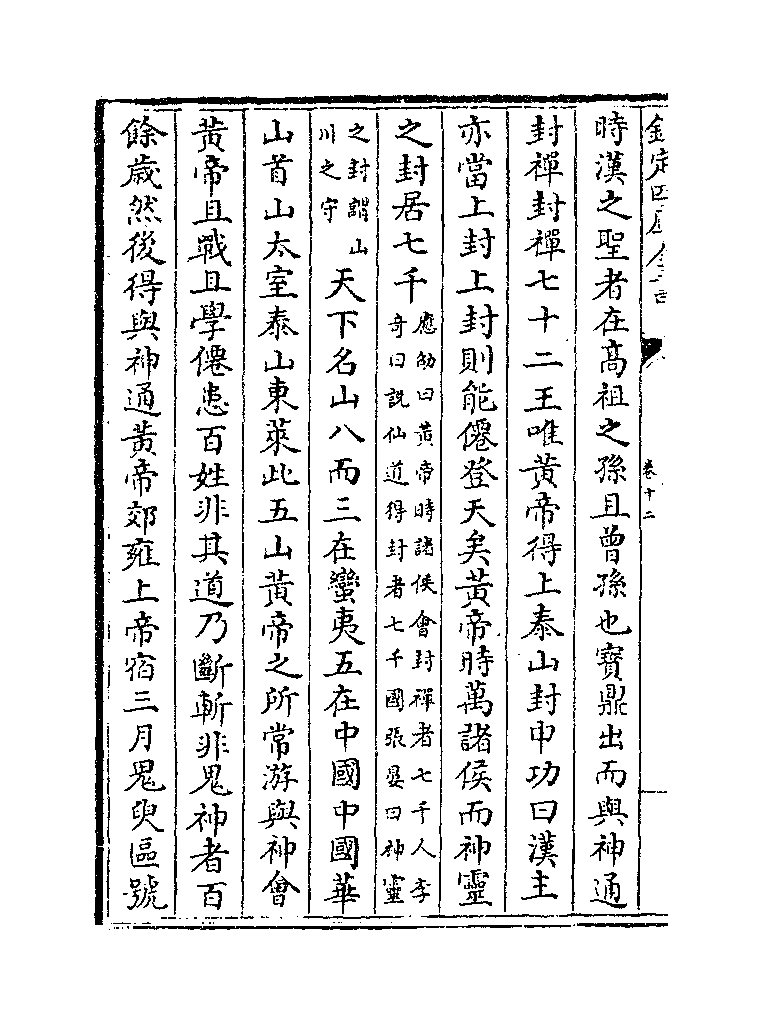 欽定四庫全書
卷十二
時漢之聖者在髙祖之孫且曾孫也寶鼎出而與神通
封禪封禪七十二王唯黃帝得上泰山封申功曰漢主
亦當上封上封則能僊登天矣黃帝時萬諸侯而神靈
之封居七千應劭曰黃帝時諸侯會封禪者七千人李奇曰説仙道得封者七千國張晏曰神靈
之封謂山川之守天下名山八而三在蠻夷五在中國中國華
山首山太室泰山東萊此五山黃帝之所常游與神會
黃帝且戰且學僊患百姓非其道乃斷斬非鬼神者百
餘歲然後得與神通黃帝郊雍上帝宿三月鬼臾區號